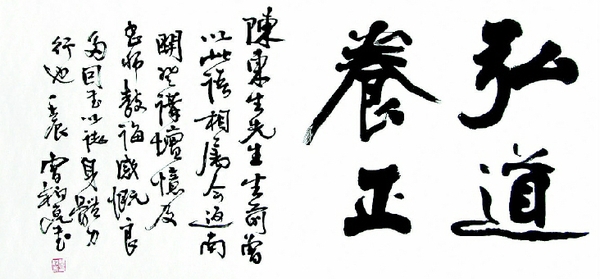 弘道
養正
陳東生先生生前曾
以此語相屬今返南
開登講壇憶及
師教誨感慨良
多因書以誌身體力
行也 壬辰